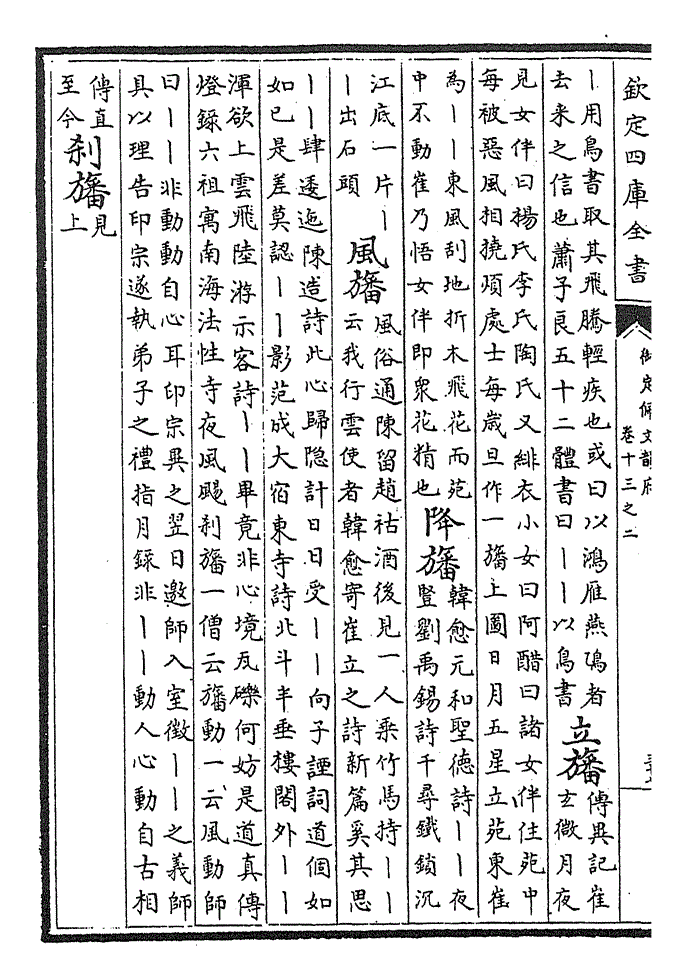 欽定四庫全書
御定佩文韻府
卷十三之二
丨用鳥書取其飛騰輕疾也或曰以鴻雁燕鳦者
去来之信也蕭子良五十二體書曰丨丨以鳥書
立旛
傳異記崔
玄微月夜
見女伴曰楊氏李氏陶氏又緋衣小女曰阿醋曰諸女伴住苑中
每被惡風相撓煩處士每嵗旦作一旛上圖日月五星立苑東崔
為丨丨東風刮地折木飛花而苑
中不動崔乃悟女伴即衆花精也
降旛
韓愈元和聖德詩丨丨夜
豎劉禹錫詩千尋鐵鎖沉
江底一片丨
丨出石頭
風旛
風俗通陳留趙祜酒後見一人乗竹馬持丨丨
云我行雲使者韓愈寄崔立之詩新篇奚其思
丨丨肆逶迤陳造詩此心歸隐計日日受丨丨向子諲詞道個如
如已是差莫認丨丨影范成大宿東寺詩北斗半垂樓閣外丨丨
渾欲上雲飛陸游示客詩丨丨畢竟非心境瓦礫何妨是道真傳
燈錄六祖寓南海法性寺夜風颺刹旛一僧云旛動一云風動師
曰丨丨非動動自心耳印宗異之翌日邀師入室徵丨丨之義師
具以理告印宗遂執弟子之禮指月錄非丨丨動人心動自古相
傳直
至今
刹旛
見
上